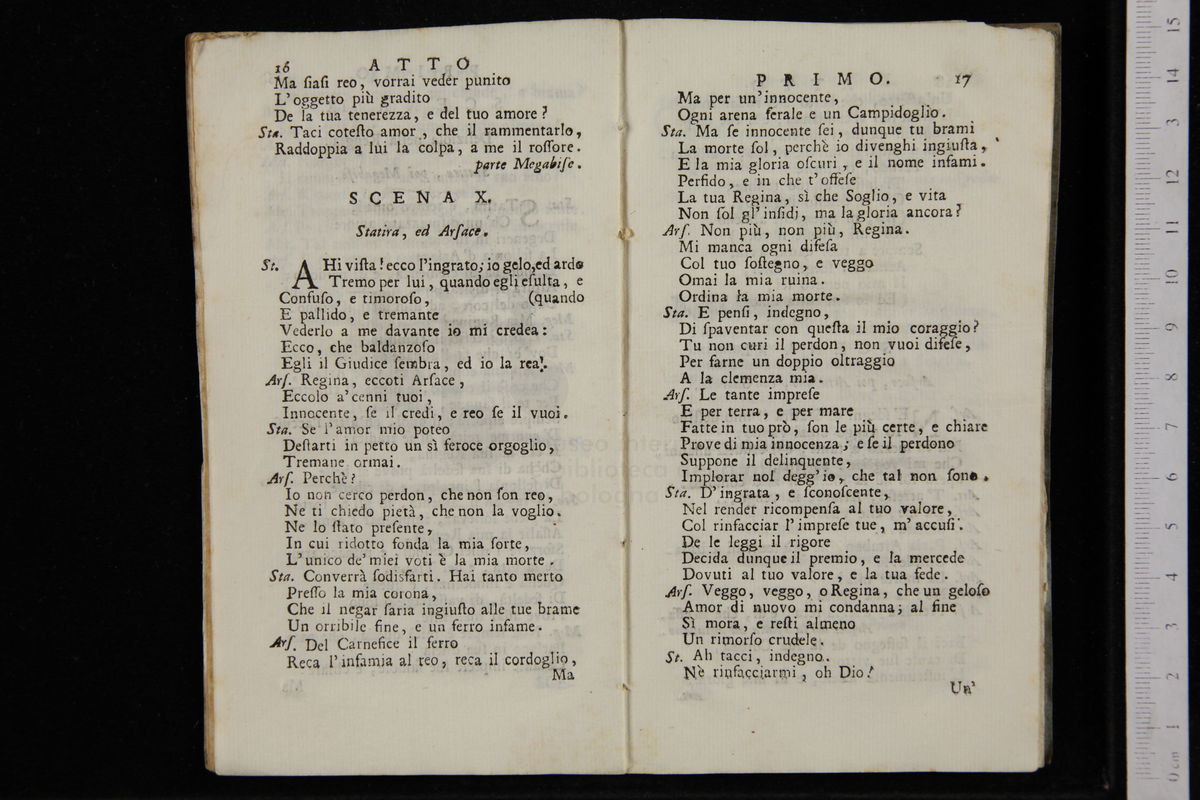 16 ATTO
Ma ſiaſi reo, vorrai veder punito
L'oggetto più gradito
De la tua tenerezza, e del tuo amore?
Sta. Taci coteſto amor, che il rammentarlo,
Raddoppia a lui la colpa, a me il roſſore.
parte Megabiſe.
SCENA X.
Statira, ed Arſace.
St. AHi viſta! ecco l'ingrato; io gelo, ed ardo
Tremo per lui, quando egli eſulta, e
Confuſo, e timoroſo, (quando
E pallido, e tremante
Vederlo a me davante io mi credea:
Ecco, che baldanzoſo
Egli il Giudice ſembra, ed io la rea!.
Arſ. Regina, eccoti Arſace,
Eccolo a' cenni tuoi,
Innocente, ſe il credi, e reo ſe il vuoi.
Sta. Se l'amor mio poteo
Deſtarti in petto un sì feroce orgoglio,
Tremane ormai.
Arſ. Perchè?
Io non cerco perdon, che non ſon reo,
Ne ti chiedo pietà, che non la voglio.
Ne lo ſtato preſente,
In cui ridotto fonda la mia ſorte,
L'unico de' miei voti è la mia morte.
Sta. Converrà ſodisfarti. Hai tanto merto
Preſſo la mia corona,
Che il negar ſaria ingiuſto alle tue brame
Un orribile fine, e un ferro infame.
Arſ. Del Carnefice il ferro
Reca l'infamia al reo, reca il cordoglio,
Ma
PRIMO. 17
Ma per un' innocente,
Ogni arena ferale e un Campidoglio.
Sta. Ma ſe innocente ſei, dunque tu brami
La morte ſol, perchè io divenghi ingiuſta,
E la mia gloria oſcuri, e il nome infami.
Perfido, e in che t'offeſe
La tua Regina, sì che Soglio, e vita
Non ſol gl'inſidj, ma la gloria ancora?
Arſ. Non più, non più, Regina.
Mi manca ogni difeſa
Col tuo ſoſtegno, e veggo
Omai la mia ruina.
Ordina la mia morte.
Sta. E penſi, indegno,
Di ſpaventar con queſta il mio coraggio?
Tu non curi il perdon, non vuoi difeſe,
Per farne un doppio oltraggio
A la clemenza mia.
Arſ. Le tante impreſe
E per terra, e per mare
Fatte in tuo prò, ſon le più certe, e chiare
Prove di mia innocenza; e ſe il perdono
Suppone il delinquente,
Implorar nol degg'io, che tal non ſono.
Sta. D'ingrata, e ſconoſcente,
Nel render ricompenſa al tuo valore,
Col rinfacciar l'impreſe tue, m'accuſi.
De le leggi il rigore
Decida dunque il premio, e la mercede
Dovuti al tuo valore, e la tua fede.
Arſ. Veggo, veggo, o Regina, che un geloſo
Amor di nuovo mi condanna; al fine
Sì mora, e reſti almeno
Un rimorſo crudele.
St. Ah tacci, indegno.
Nè rinfacciarmi, oh Dio!
Un'
0 cm 1 2 3 4 5 6 7 8 9 10 11 12 13 14 15